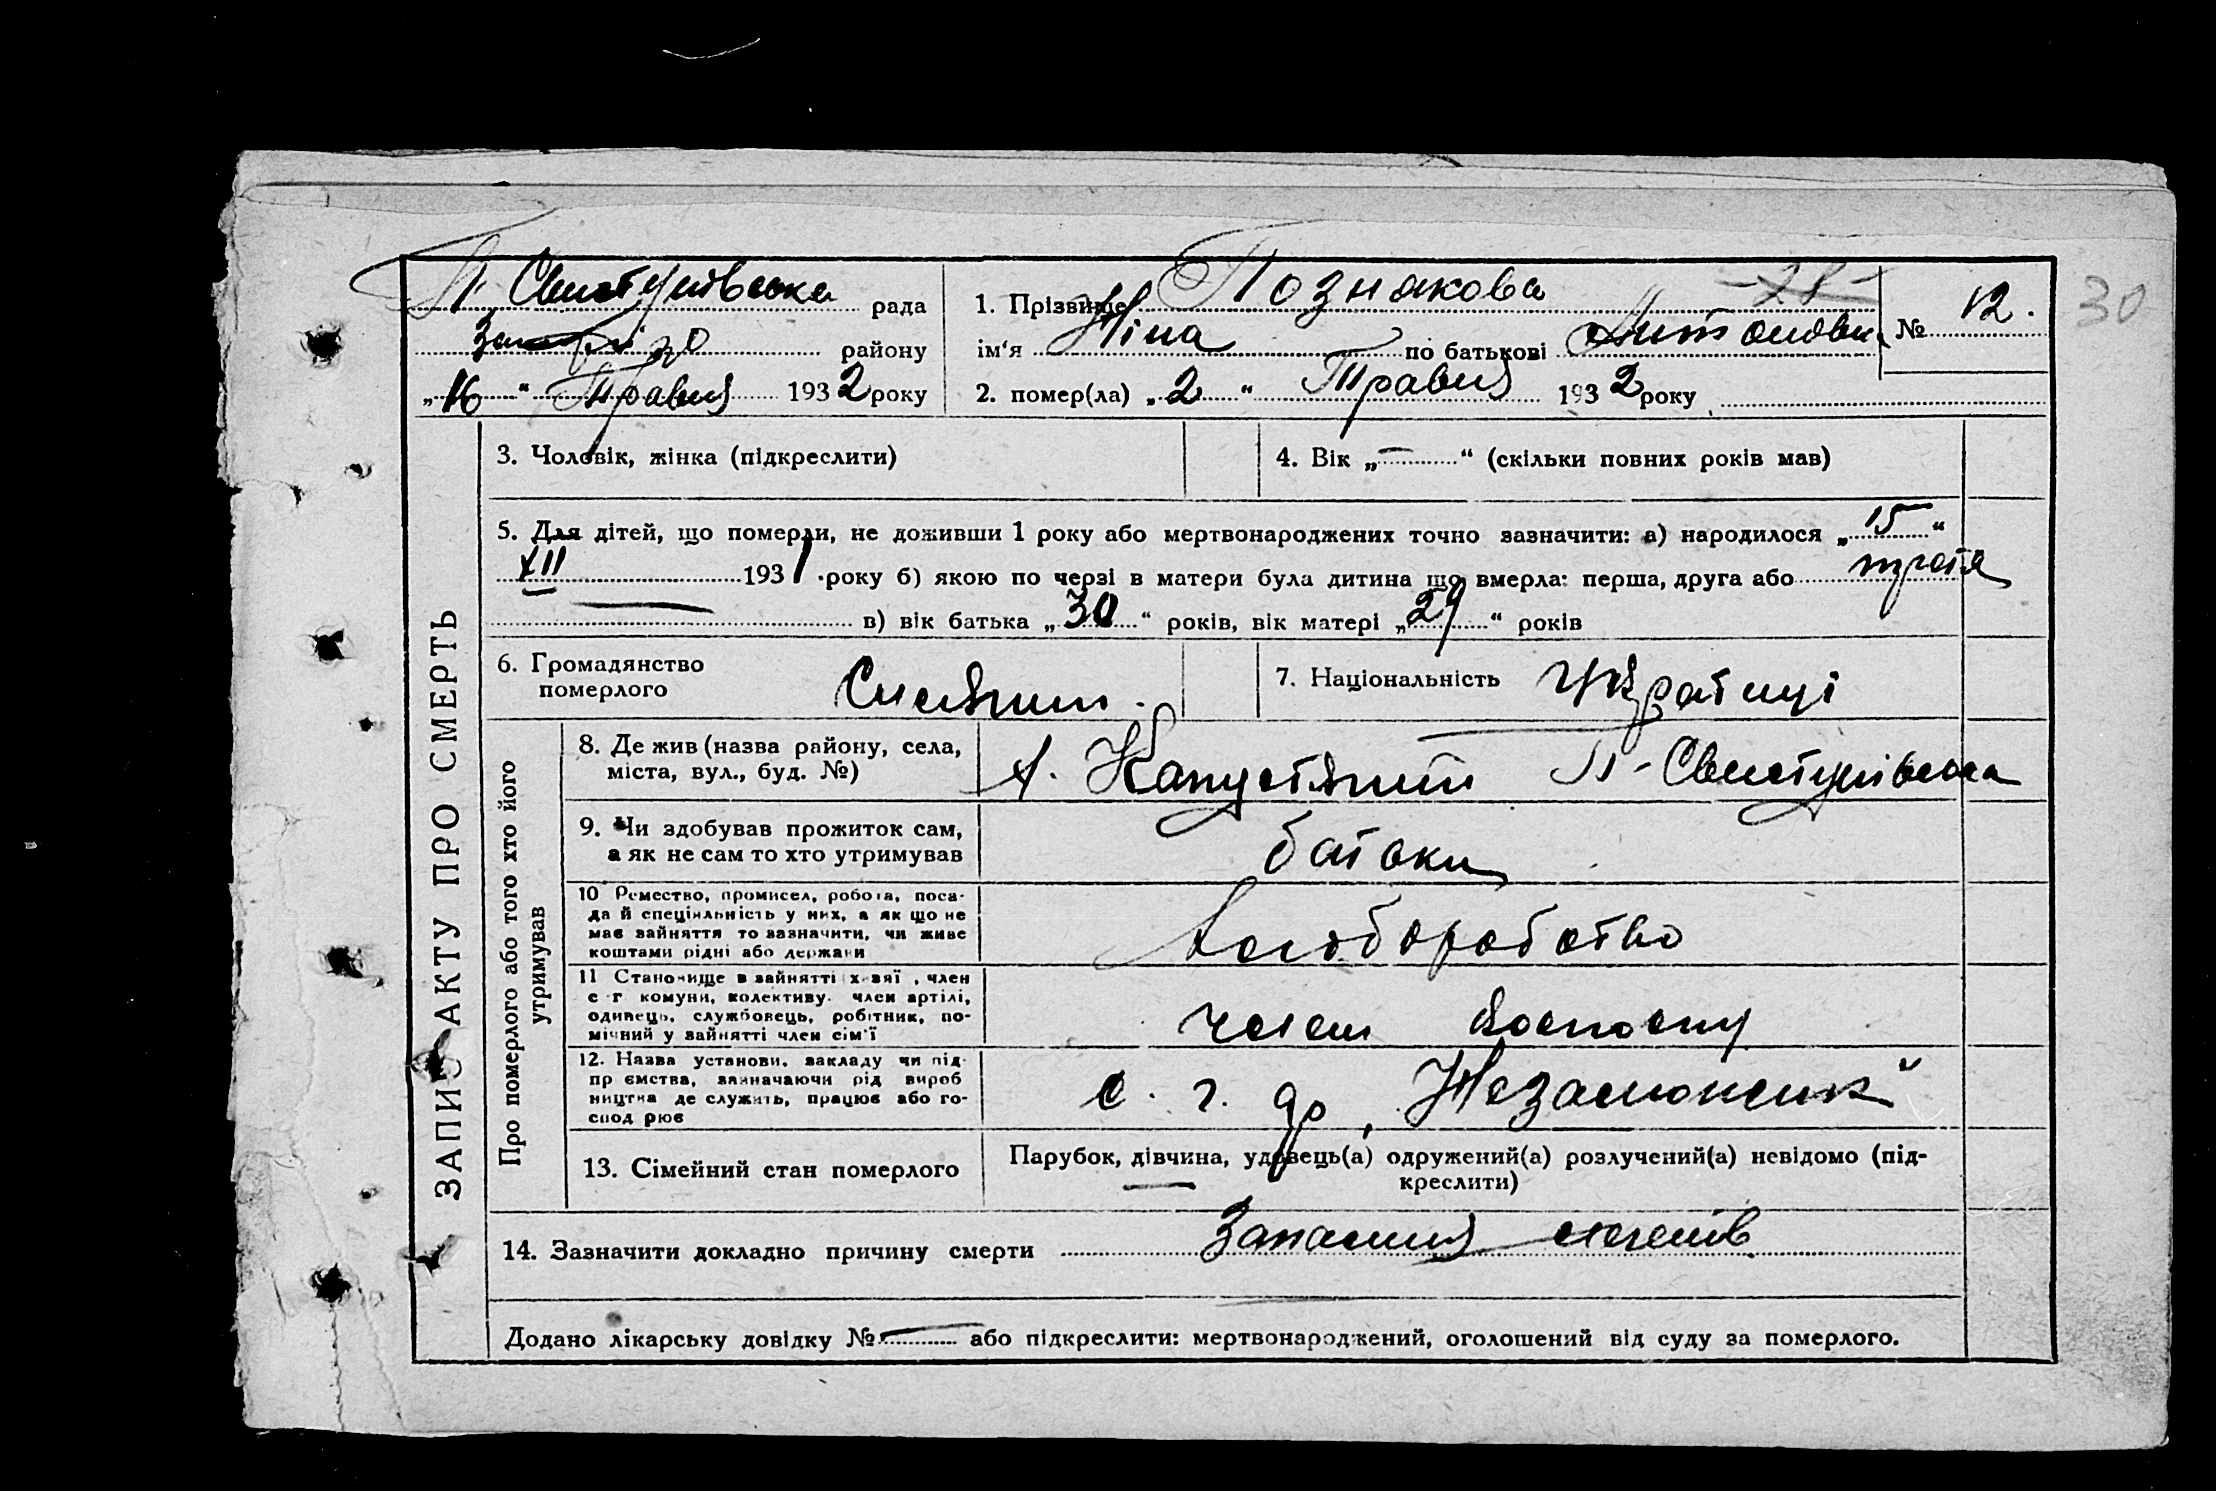 30
П. Свистунівська рада
району
„16“ Травня 1932 року
1. Прізвище Познякова -28-
ім‘я Ніна по батькові Антоновн.
№ 12.
2. помер(ла) „2“ Травня 1932 року
ЗАПИС АКТУ ПРО СМЕРТЬ
3. Чоловік, жінка (підкреслити)
4. Вік „—“ (скільки повних років мав)
5. Для дітей, що померли, не доживши 1 року або мертвонароджених точно зазначити: а) народилося „15“
XII 1931 року б) якою по черзі в матери була дитина що вмерла: перша, друга або третя
в) вік батька „30“ років, вік матері „29“ років
6. Громадянство
померлого
7. Національність
Про померлого або того хто його
утримував
8. Де жив (назва району, села,
міста, вул., буд. №)
х. Капустяний П-Свистунівська
9. Чи здобував прожиток сам,
а як не сам то хто утримував
батьки
10 Ремество, промисел, робота, поса-
да й спеціяльність у них, а як що не
має зайняття то зазначити, чи живе
коштами рідні або держави
Хліборобство
11 Становище в зайнятті хазяї, член
с-г комуни, колективу. член артілі,
одинець, службовець, робітник, по-
мічний у зайнятті член сім'ї
член
12. Назва установи, закладу чи під-
приємства, зазначаючи рід вироб
ництва де служить, працює або го-
сподарює
с. г. ар „Незаможник“
13. Сімейний стан померлого
Парубок, дівчина, удовець(а) одружений(а) розлучений(а) невідомо (під-
креслити)
14. Зазначити докладно причину смерти Запалння легенів
Додано лікарську довідку №— або підкреслити: мертвонароджений, оголошений від суду за померлого.